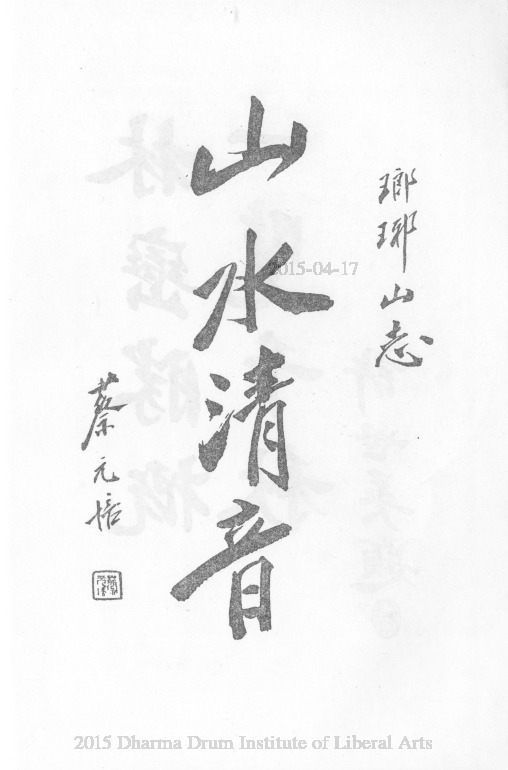 瑯琊山志
山水清音
蔡元培
2015-04-17
2015 Dharma Drum Institute of Liberal Arts